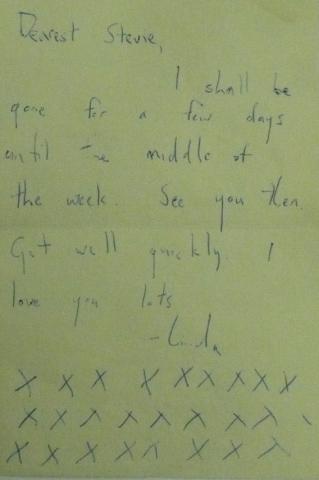 Dearest Stevie,
I shall be
gone for a few days
until the middle of
the week. See you then.
Get well quickly. I
love you lots
-Linda
X X X X X X X X X
X X X X X X X X
X X X X X X X X